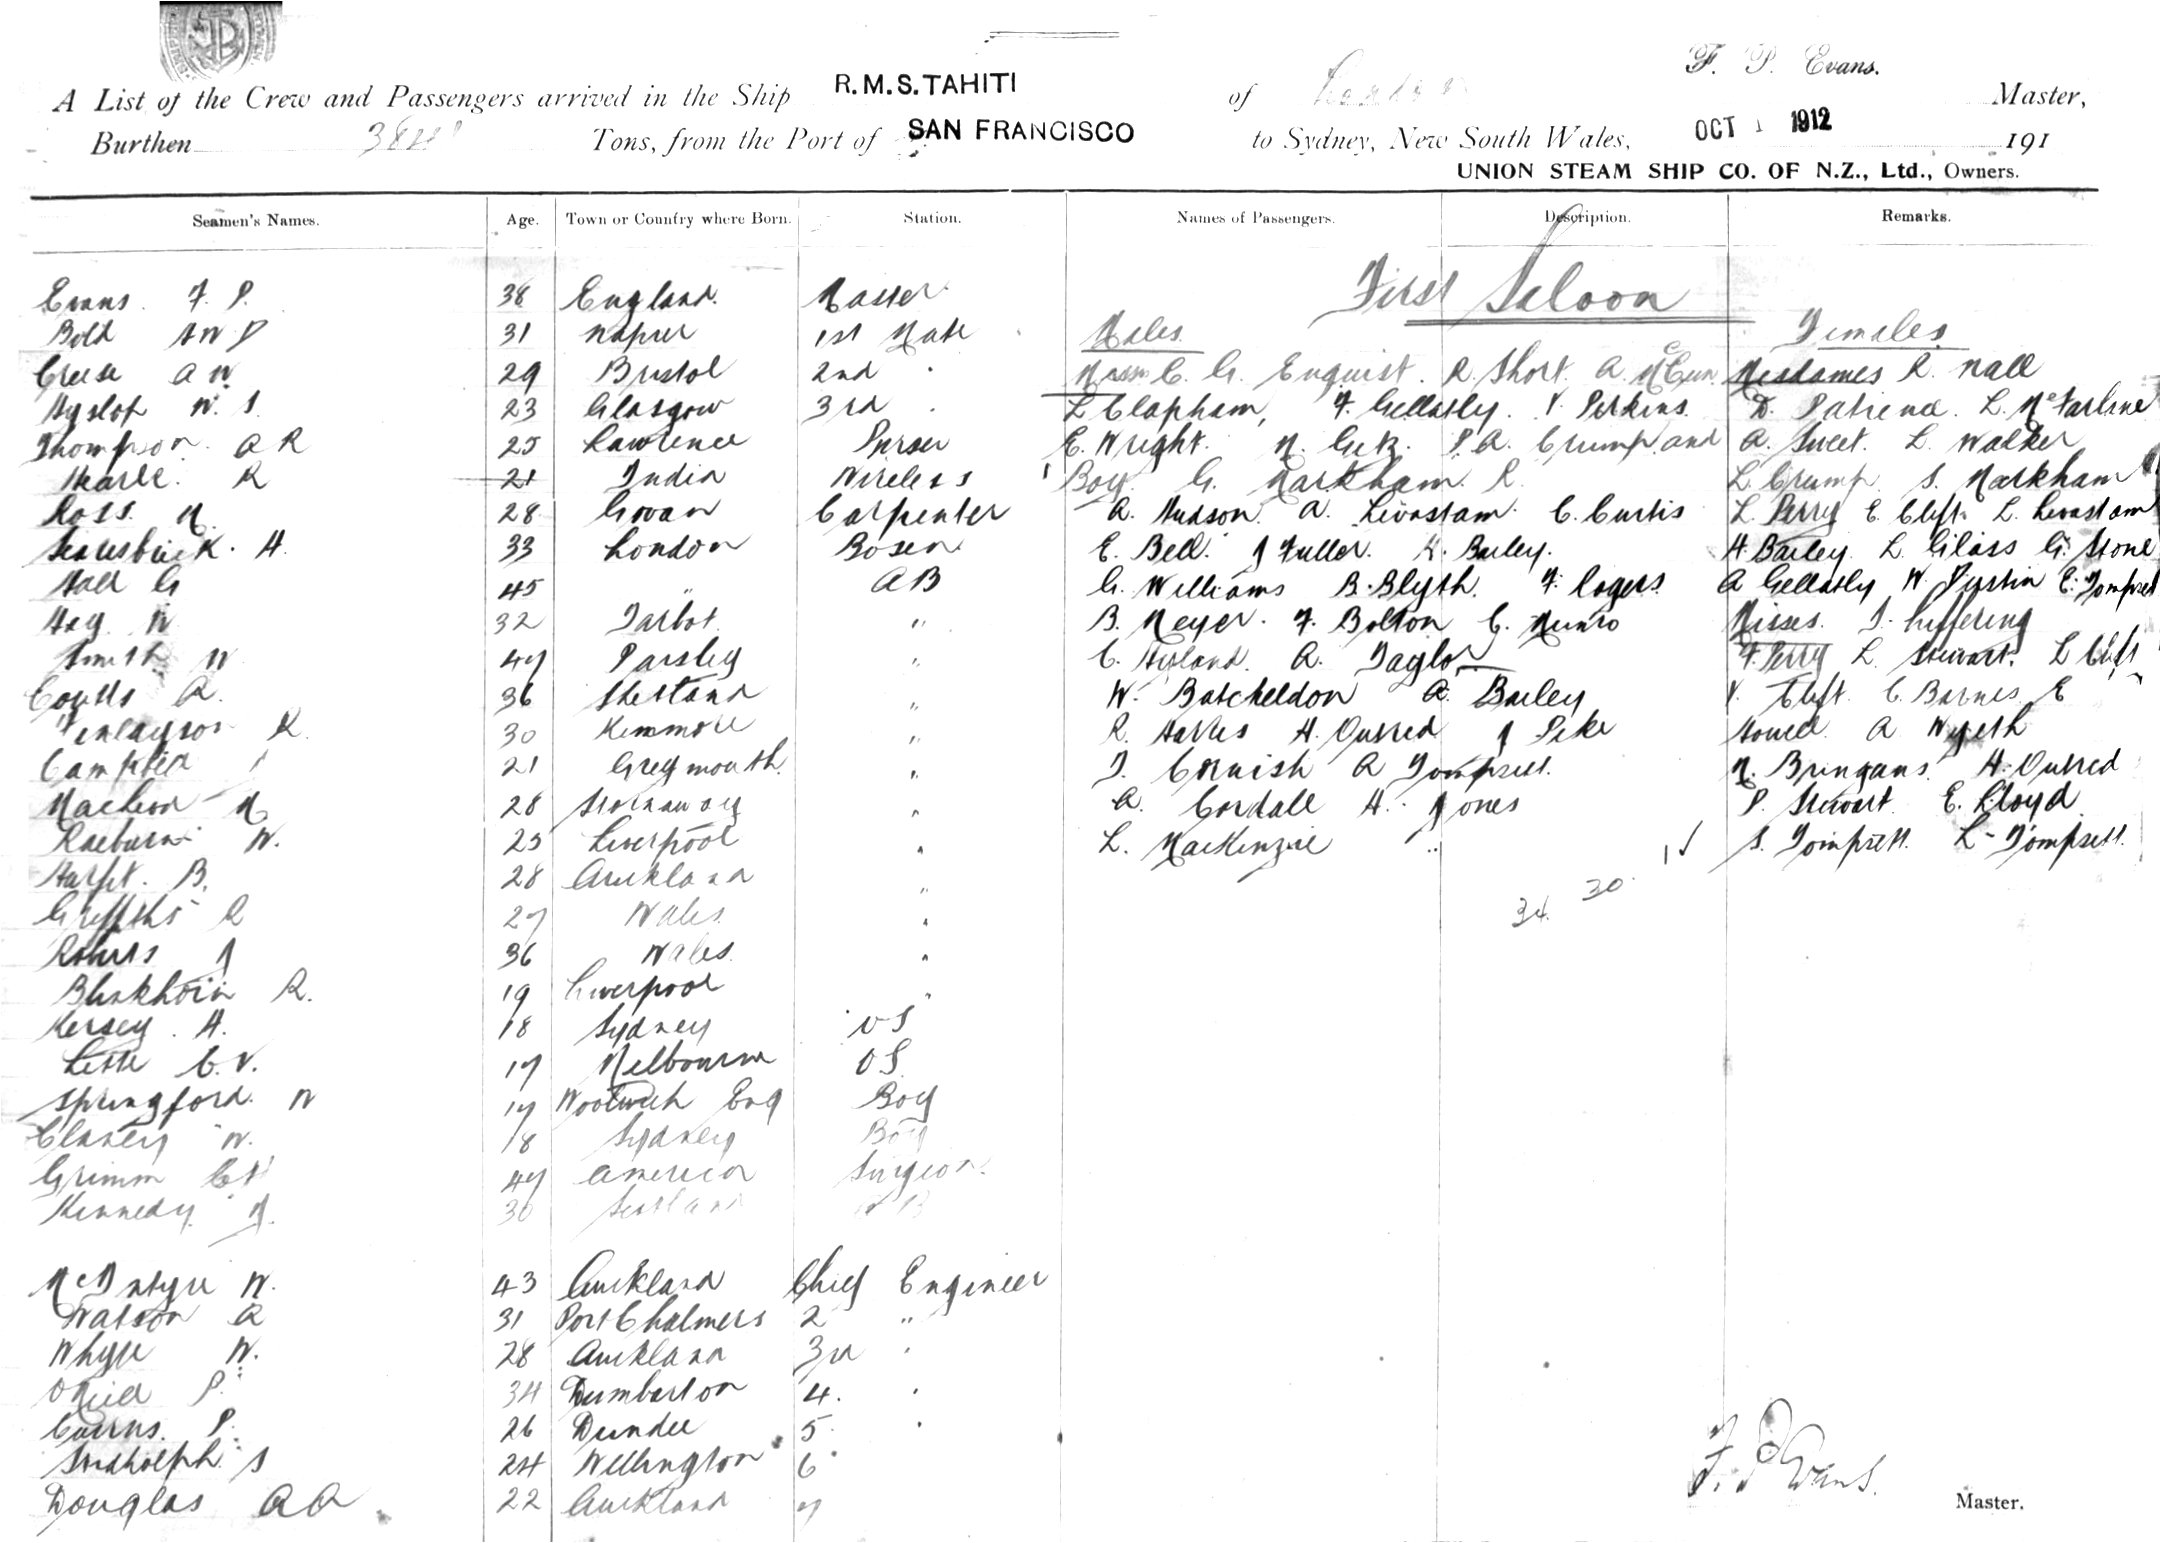 F. P. Evans.
A List of the Crew and Passengers arrived in the Ship R.M.S. TAHITI of London Master,
Burthen Tons, from the Port of SAN FRANCISCO to Sydney, New South Wales, OCT 1 1912 191
UNION STEAM SHIP CO. OF N.Z., Ltd., Owners.
Seamen's Names. Age. Town or Country where Born. Station. Names of Passengers. Description. Remarks.
First Saloon
Males. Females.
Evans. F. P. 38 England. Master
Bold 31 Napier 1st Mate
Creese A W. 29 Bristol 2nd "
Hyslop W. S. 23 Glasgow 3rd "
Thompson. A R 25 Lawrence Purser
Hearle. R 21 India Wireless
Ross. M. 28 Govan Carpenter
H. 33 London Bosen
Hall G 45 " A B
Hay W 32 Tarbot. "
Smith W 47 Parsley "
Coutts A. 36 Shetland "
Finlayson R. 30 Kenmore "
Campbell 21 Greymouth. "
MacLeod M 28 Stornaway "
Raeburn W. 25 Liverpool "
B. 28 Auckland "
Griffiths R 27 Wales. "
Roberts J 36 Wales. "
Blinkhorn R. 19 Liverpool "
Kersey. H. 18 Sydney O S
C. V. 17 Melbourne O S.
Springford. W 17 Woolwich Eng Boy
Clancy W. 18 Sydney Boy
Grimm 47 America Surgeon.
Kennedy 30 Scotland A B
McIntyre W. 43 Auckland Chief Engineer
Watson A 31 Port Chalmers 2 "
Whyte W. 28 Auckland 3rd "
O'Neill P. 34 Dumbarton 4. "
Cairns. P. 26 Dundee 5. "
S 24 Wellington 6 "
Douglas A A 22 Auckland 7
C. G. Enquist. R Short. A. McCun Mesdames R. Nall
L Clapham, F. Gellatly. V. Perkins. D. Patience. L. McFarline
E. Wright. M. Getz. P. A. Crump. and A. Sweet. L. Walker
1 Boy. G. Markham. R. L. Crump. S. Markham
A. Hudson. A. Livastam. C. Curtis L. Perry E. Clift. L. Livastam
E. Bell. J Fuller. H. Bailey. H. Bailey. L. Gilass G. Stone
G. Williams B. Blyth. F. Rogers. A Gellatly W. Tustin E. Tompsett
B. Meyer. F. Bolton C. Munro Misses. I. Luffering
C. Hyland. A. Taylor F. Perry L. Stewart. L Clift
W. Batcheldon A. Bailey V. Clift. C. Barnes. E
R. Hawes H. Outred J Pike Howell. A Wyeth
T. Cornish A Tompsett. M. Bringans. H. Outred
A. Cordall H. Jones P. Stewart. E. Lloyd.
L. MacKenzie " S. Tompsett. L. Tompsett.
34. 30.
F. P Evans.
Master.